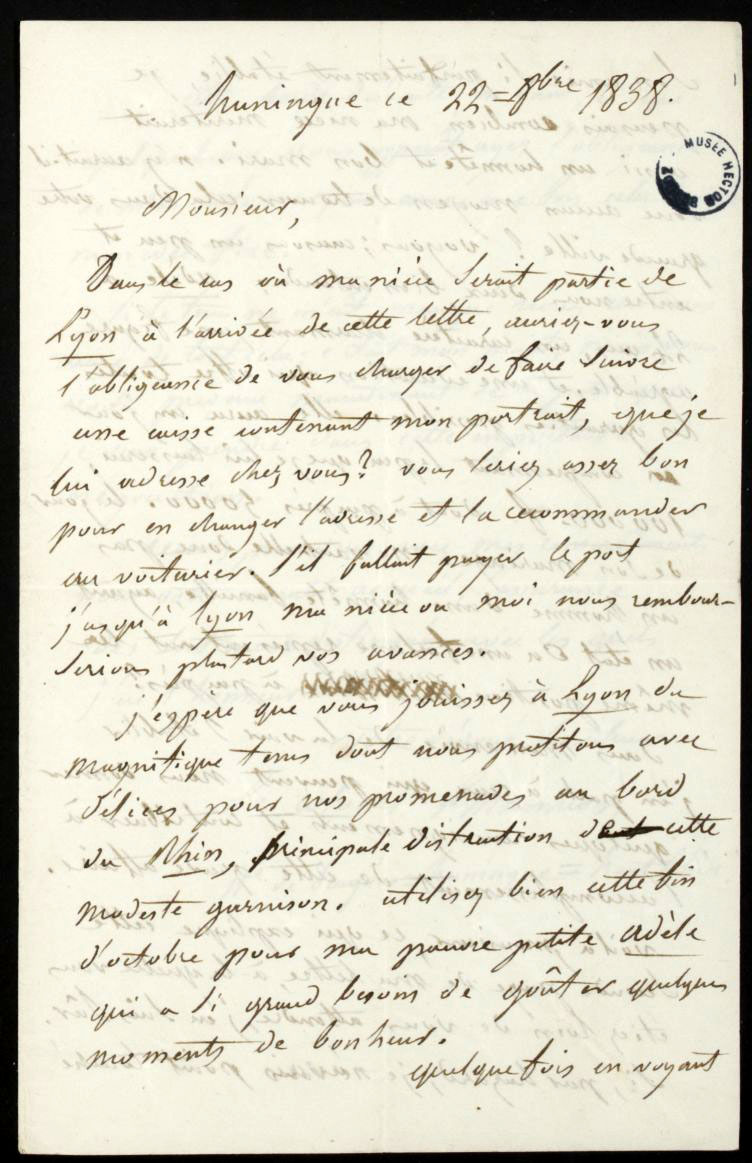 huningue ce 22 = 8bre 1838.
MUSÉE HECTOR BERLIOZ
Monsieur,
Dans le cas où ma nièce serait partie de
Lyon à l'arrivée de cette lettre, auriez-vous
l'obligeance de vous charger de faire suivre
une caisse contenant mon portrait, que je
lui adresse chez vous? vous seriez assez bon
pour en changer l'adresse et la recommander
au voiturier. S'il fallait payer le port
jusqu'à Lyon ma nièce ou moi nous rembour-
serions plustard vos avances.
j'espère que vous jouissez à Lyon du
magnifique tems dont nous profitons avec
délices pour nos promenades au bord
du Rhin, principale distraction de cette
modeste garnison. utilisez bien cette fin
d'octobre pour ma pauvre petite adèle
qui a si grand besoin de goûter quelques
moments de bonheur.
quelque fois en voyant